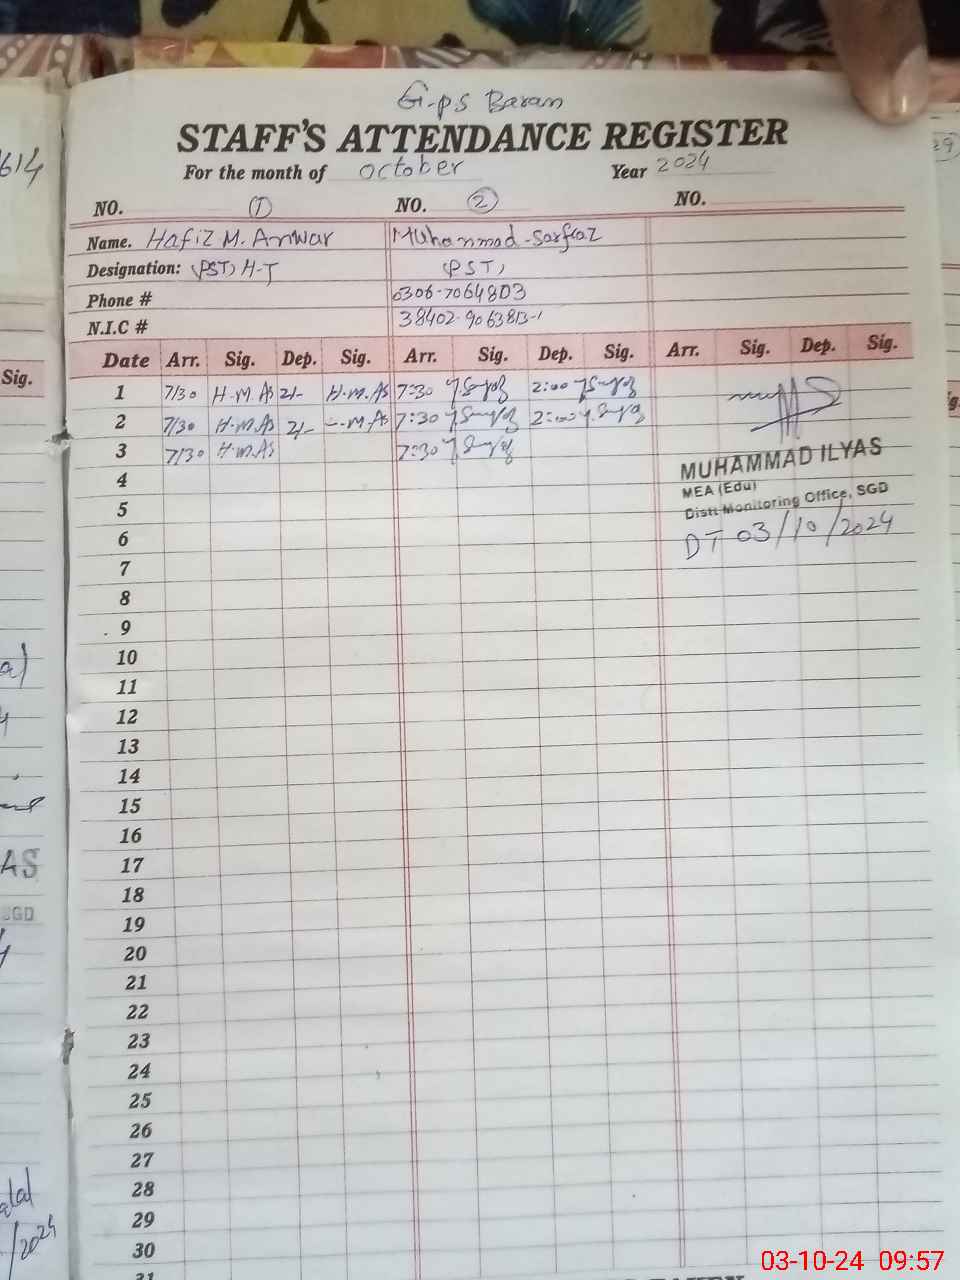 G-ps Baran
STAFF'S ATTENDANCE REGISTER
For the month of October Year 2024
NO. 1 NO. 2 NO.
Name. Hafiz M. Anwar Muhammad-Sarfraz
Designation: (PST) H-T (PST)
Phone # 0306-7064803
N.I.C # 38402-9063813-1
Date Arr. Sig. Dep. Sig. Arr. Sig. Dep. Sig. Arr. Sig. Dep. Sig.
1 7/30 H.M.As 2/- H.M.As 7:30 2:00
2 7/30 H.M.As 2/- M.As 7:30 2:00
3 7/30 H.M.As 7:30
MUHAMMAD ILYAS
MEA (Edu)
Distt Monitoring Office, SGD
DT 03/10/2024
4
5
6
7
8
9
10
11
12
13
14
15
16
17
18
19
20
21
22
23
24
25
26
27
28
29
30
31
614
Sig.
AS
SGD
/2024
29
03-10-24 09:57